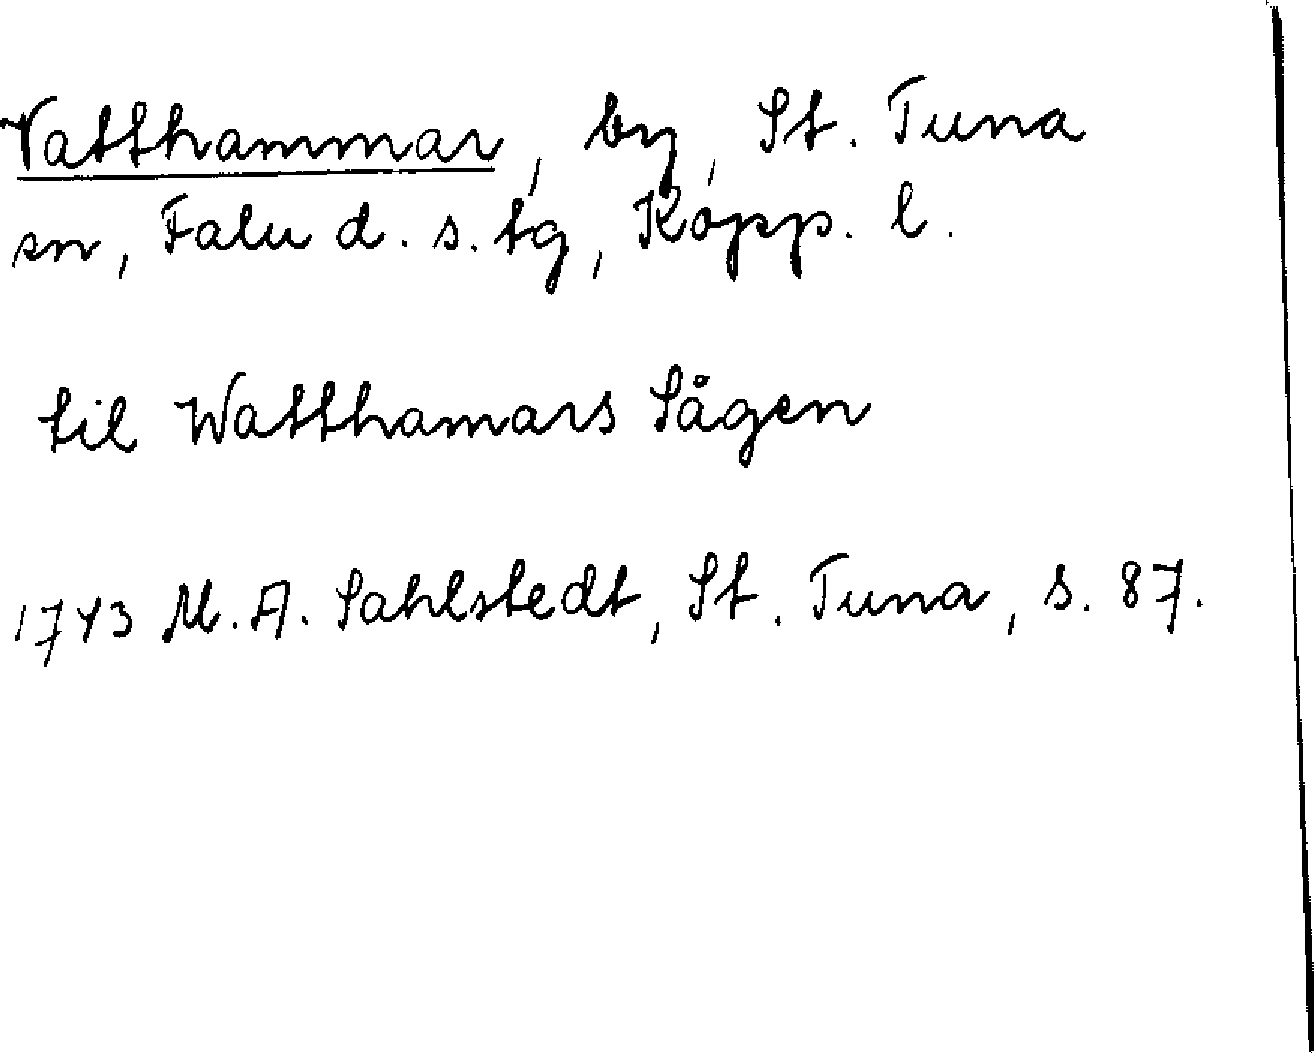 Vatthammar, by, St. Tuna
sn, Falu d. s. tg, Kopp. l.
til Watthamars Sågen
1743 M. A. Sahlstedt, St. Tuna, s. 87.